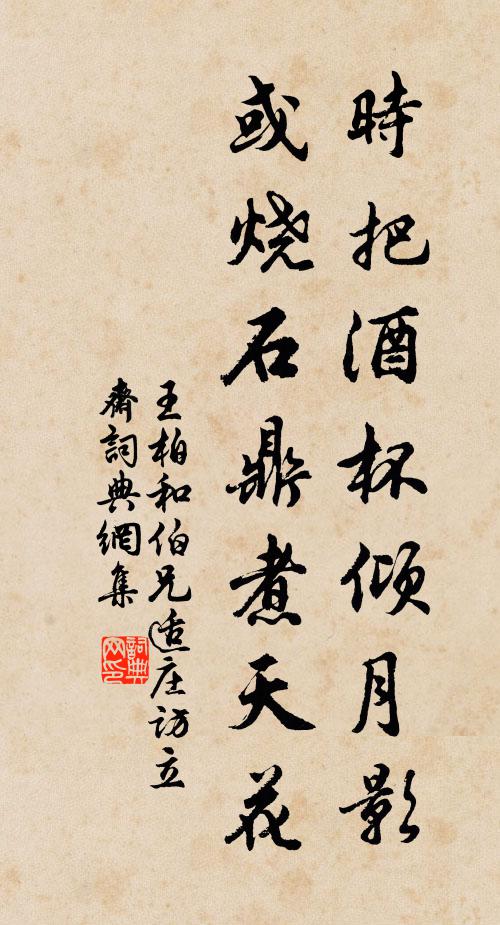 時把酒杯倾月影
或烧石鼎煮天花
王柏和伯兄适庄访立
齋詞典網集
詞典
网印